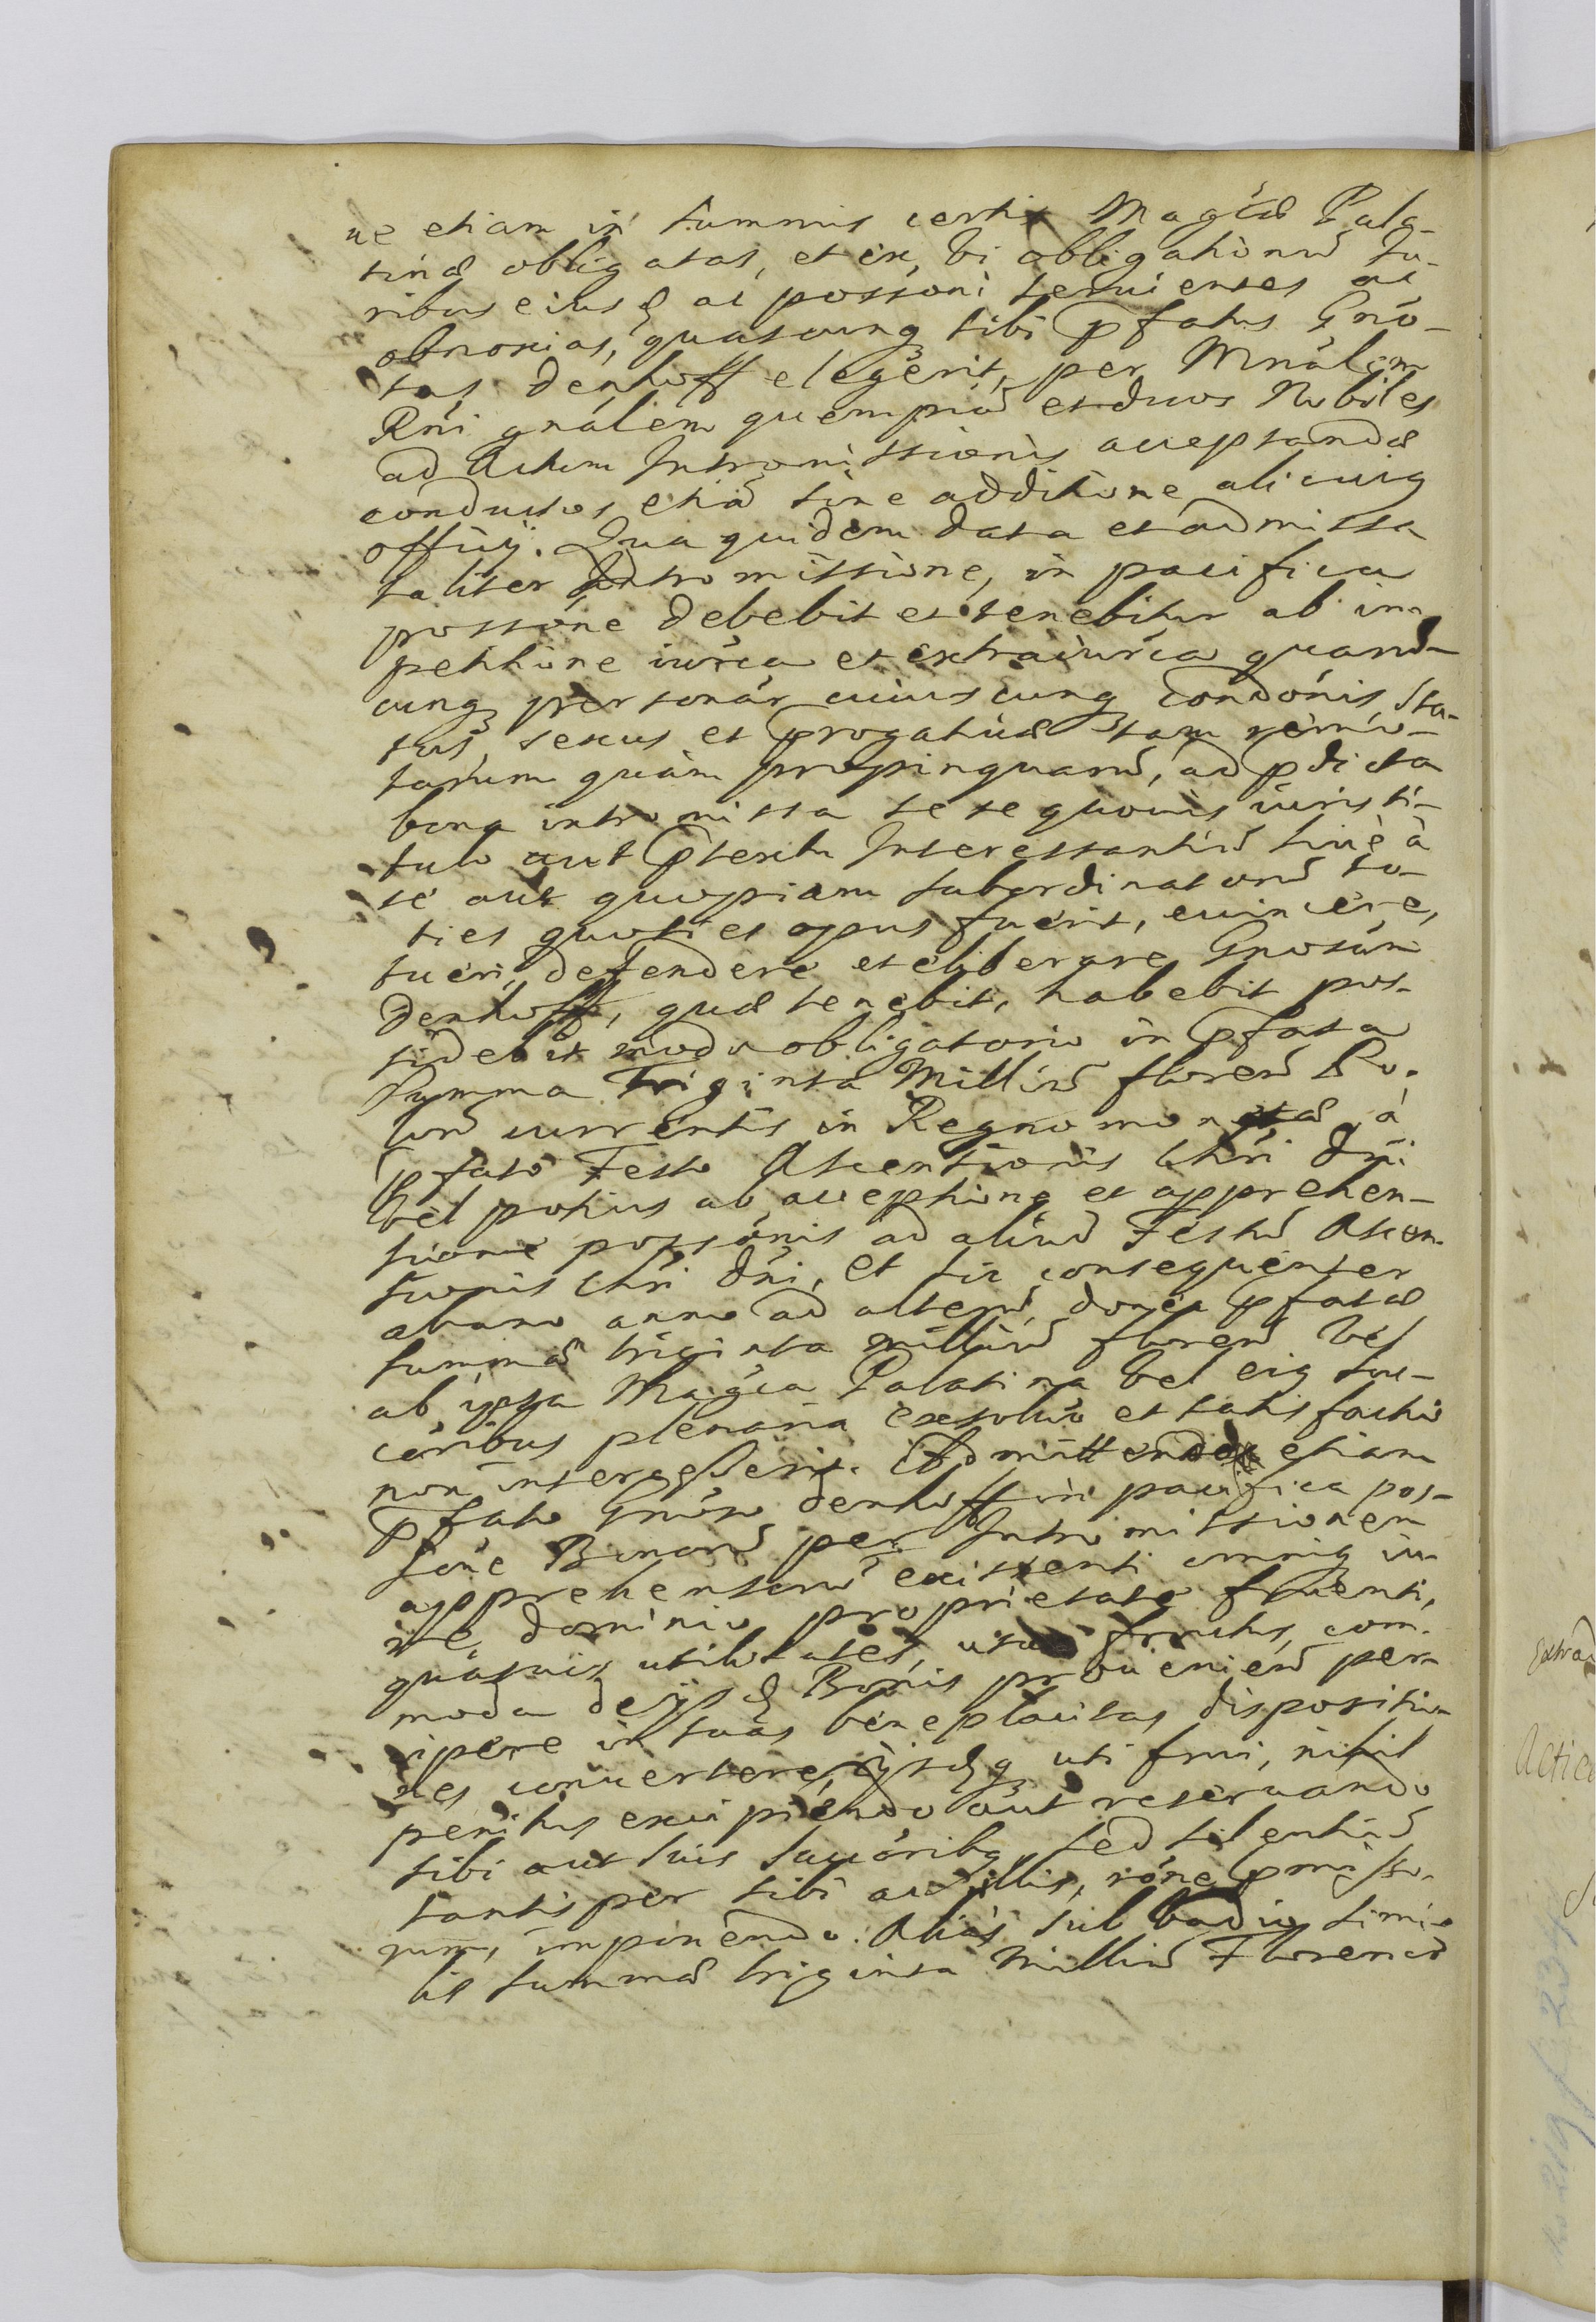 ne etiam in summis certis Magcæ Pala-
tinæ obligatas, et ex vi obligationū Iu-
ribus eiusd ac possoni seruientes ac
obnoxias, quascunq sibi pfatus Gnō-
sus Denhoff elegerit, per Mnālem
Rni gnālem quempiā et duos Nobiles
ad Actum Intromissionis acceptandæ
conductos etiā sine additione alicuig
officij. Qua quidem data et admissa
taliter Intromissione, in pacifica
possone debebit et tenebitur ab im-
petitione iurica et extraiurica quarū-
cunq personar cuiuscunq condonis, sta-
tus, sexus et progatiuæ tam remo-
tarum quàm propinquarū, ad pdicta
bona intromissa sese quouis iuris ti-
tulo aut ptextu Interessantiū siue à
se aut quopiam subordinatorū to-
ties quoties opus fuerit, euincere,
tueri, defendere et eliberare Gnosum
Denhoff, quæ tenebit, habebit pos-
sidebit modo obligatorio in pfata
Summa Triginta Milliū floren Po-
lon currentis in Regno monetæ, à
pfato Festo Ascentionis Chri Dni
vel potius ab acceptione et apprehen-
sione possonis ad aliud Festū Ascen-
sionis Chri Dni, et sic consequenter
ab uno anno ad alterū, donec pfatæ
summæ triginta milliū floren vel
ab ipsa Magca Palatina vel eig suc-
coribus plenaria exsolutio et satisfactio
non intercesserit. Admittendo etiam
pfato Gnoso Denhoff in pacifica pos-
sone Bonorū per Intromissionem
apprehensorū existenti omniq iu-
re, dominio, proprietate fruenti,
quasuis utilitates, usus fructus, com-
moda de ijsd Bonis prouenien per-
cipere in suas beneplacitas dispositio-
nes conuertere, ijsdq uti frui, nihil
penitus excipiendo aut reseruando
sibi aut suis succoribq, sed silentiū
tantisper sibi ac illis, rone pmisso-
rum, imponendo. Aliàs sub vadio simi-
lis summæ triginta Milliū Florenor